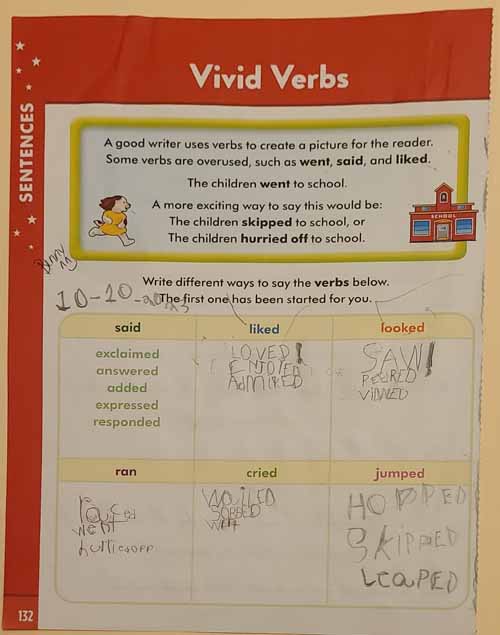 Vivid Verbs
SENTENCES
A good writer uses verbs to create a picture for the reader.
Some verbs are overused, such as went, said, and liked.
The children went to school.
A more exciting way to say this would be:
The children skipped to school, or
The children hurried off to school.
SCHOOL
Write different ways to say the verbs below.
10-10-
The first one has been started for you.
said
liked
looked
exclaimed
answered
added
expressed
responded
LOVED
ENJOYED
ADMIRED
SAW
PEERED
VIEWED
ran
cried
jumped
raced
went
WAILED
SOBBED
HOPPED
SKIPPED
LEAPED
132